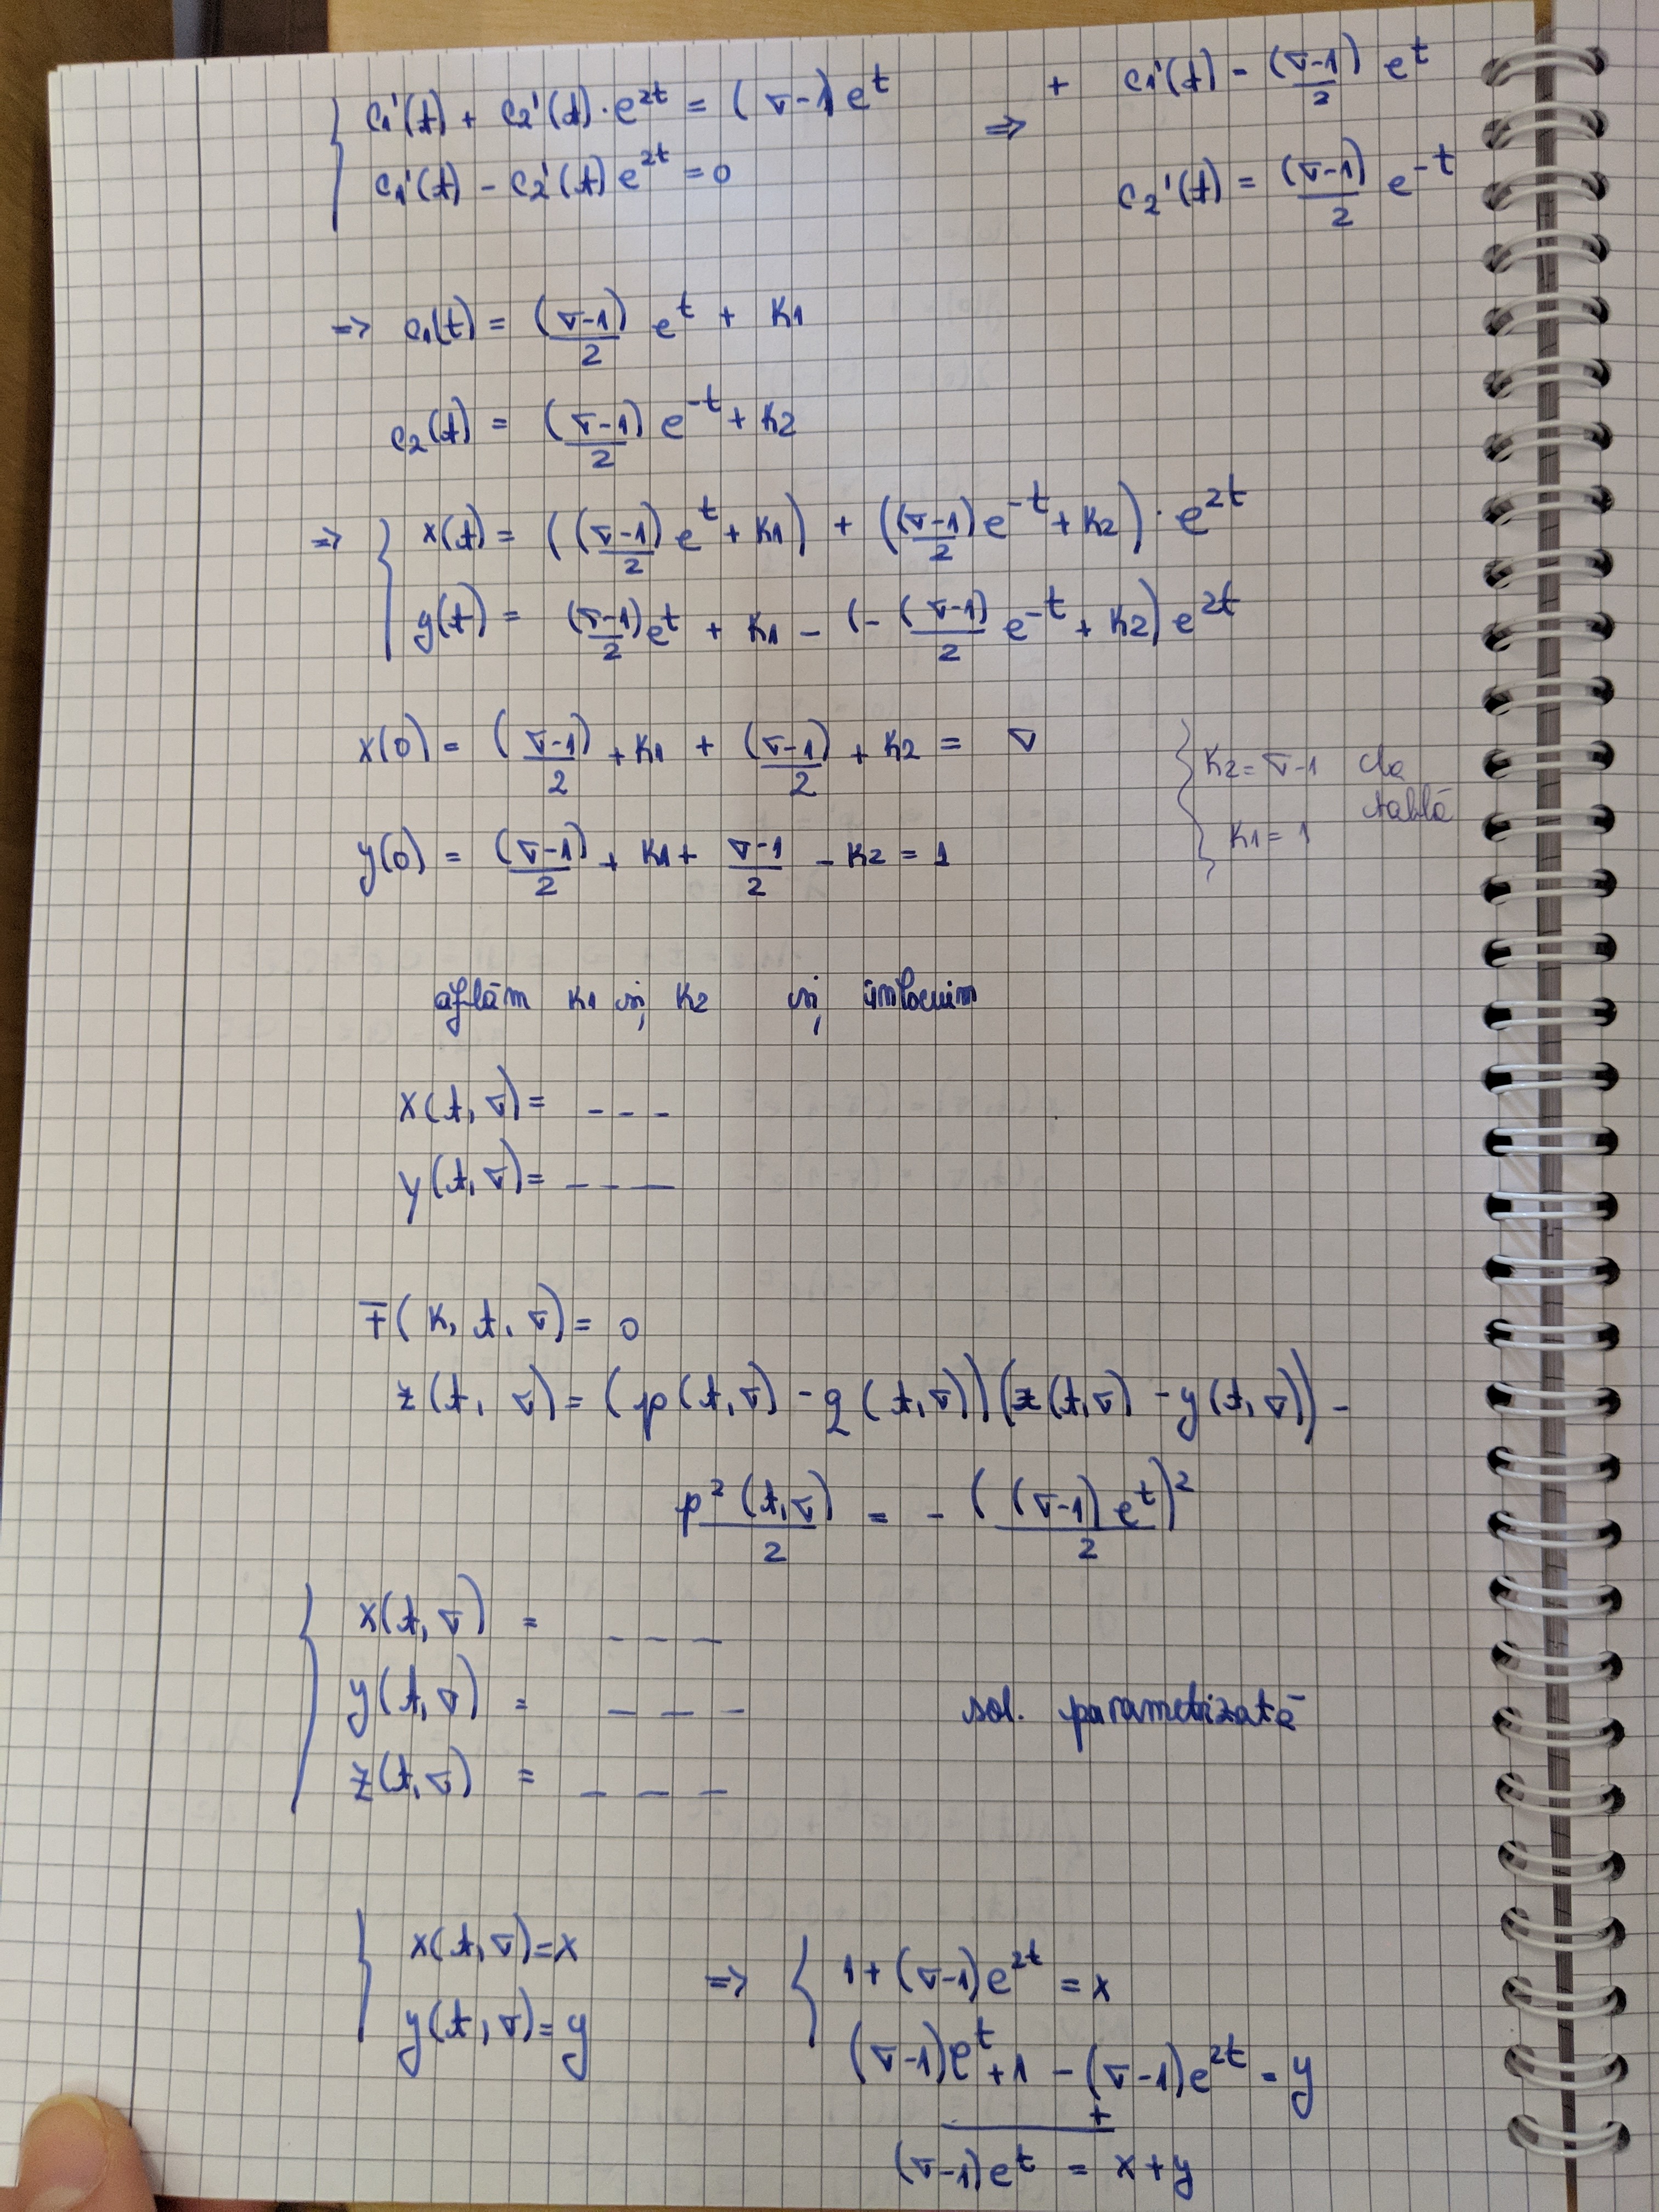 { c₁'(t) + c₂'(t)·e^{2t} = (∇-1)e^t
c₁'(t) - c₂'(t)e^{2t} = 0
⇒ + c₁'(t) - (∇-1)/2 e^t
c₂'(t) = (∇-1)/2 e^{-t}
=> c₁(t) = (∇-1)/2 e^t + K1
c₂(t) = (∇-1)/2 e^{-t} + K2
=> { x(t) = ((∇-1)/2 e^t + K1) + ((∇-1)/2 e^{-t} + K2)·e^{2t}
y(t) = (∇-1)/2 e^t + K1 - (-(∇-1)/2 e^{-t} + K2)e^{2t}
x(0) = (∇-1)/2 + K1 + (∇-1)/2 + K2 = ∇
y(0) = (∇-1)/2 + K1 + (∇-1)/2 - K2 = 1
} K2 = ∇-1 la
tablă
K1 = 1
aflăm K1 și K2 și înlocuim
x(t,∇) = - - -
y(t,∇) = - - -
F(K, t, ∇) = 0
z(t, ∇) = (p(t,∇) - q(t,∇))(x(t,∇) - y(t,∇)) -
p²(t,∇)/2 = - ((∇-1)e^t)²/2
{ x(t,∇) = - - -
y(t,∇) = - - - sol. parametrizată
z(t,∇) = - - -
{ x(t,∇)=x => { 1+(∇-1)e^{2t} = x
y(t,∇)=y (∇-1)e^t+1 - (∇-1)e^{2t} = y
+
(∇-1)e^t = x+y